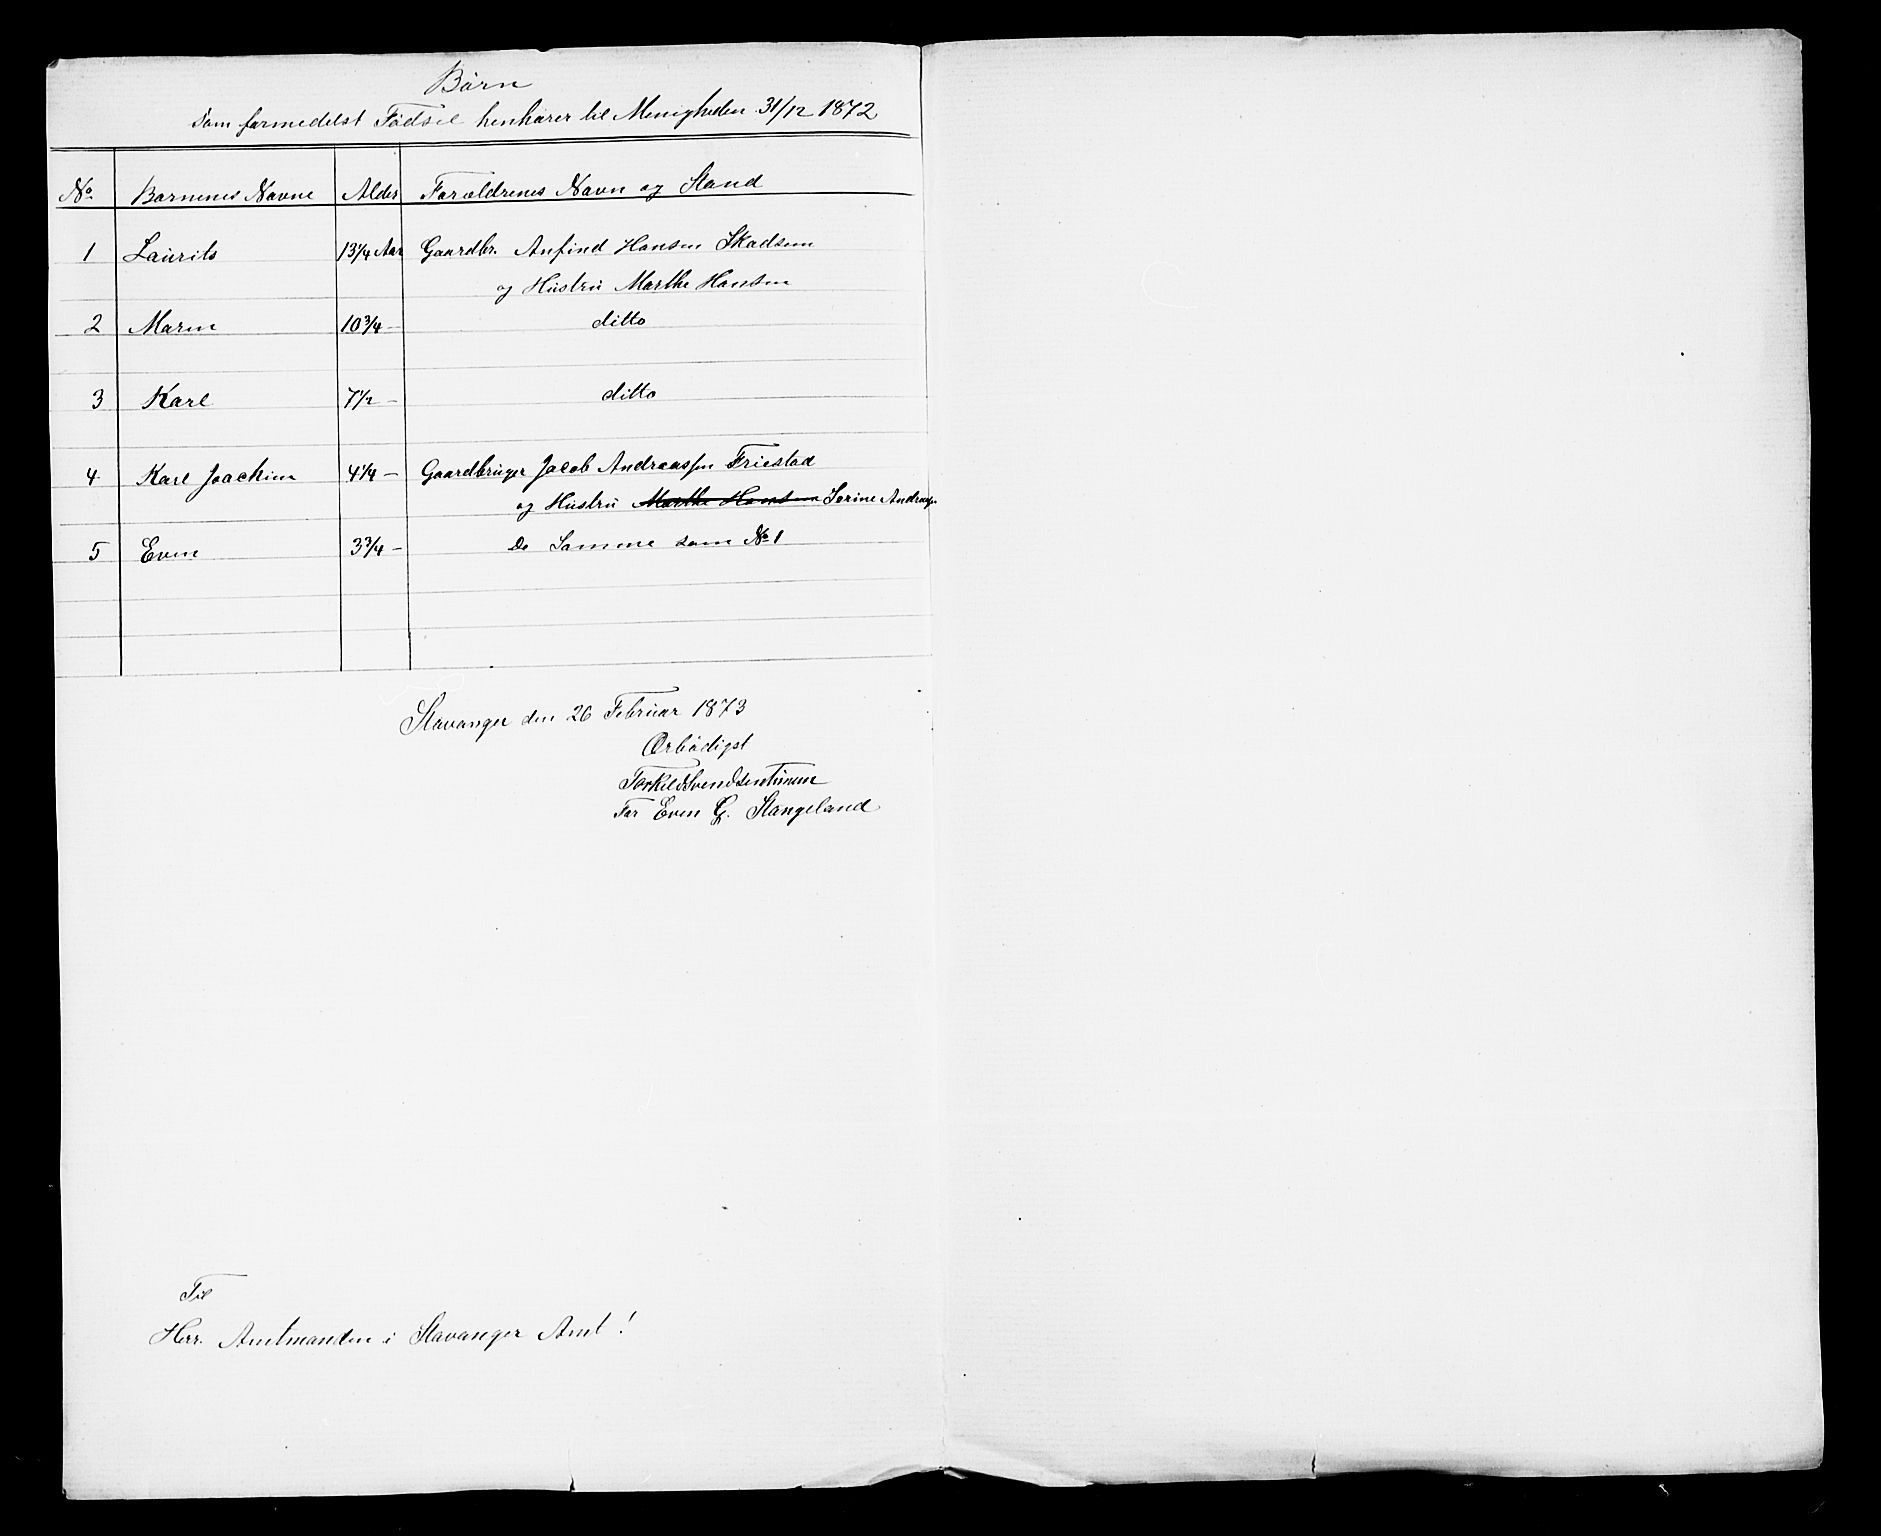 Börn
som formedelst Födsel henhörer til Menigheden 31/12 1872
No Börnenes Navne Alder Forældrenes Navn og Stand
1 Laurits 13 1/4 Aar Gaardbr. Anfind Hansen Skadsem
og Hustru Marthe Hansen
2 Maren 10 3/4 — ditto
3 Karl 7 1/2 — ditto
4 Karl Joachim 4 1/4 — Gaardbruger Jacob Andreassen Friestad
og Hustru Marthe Hansen Serine Andreassen
5 Even 3 3/4 — De Samme som No 1
Stavanger den 26 Februar 1873
Ærbödigst
Torkild Svendsen
For Even G. Stangeland
Til
Herr. Amtmanden i Stavanger Amt!